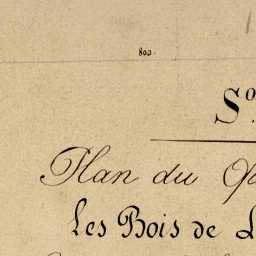 800.
So
Plan du
Les Bois de